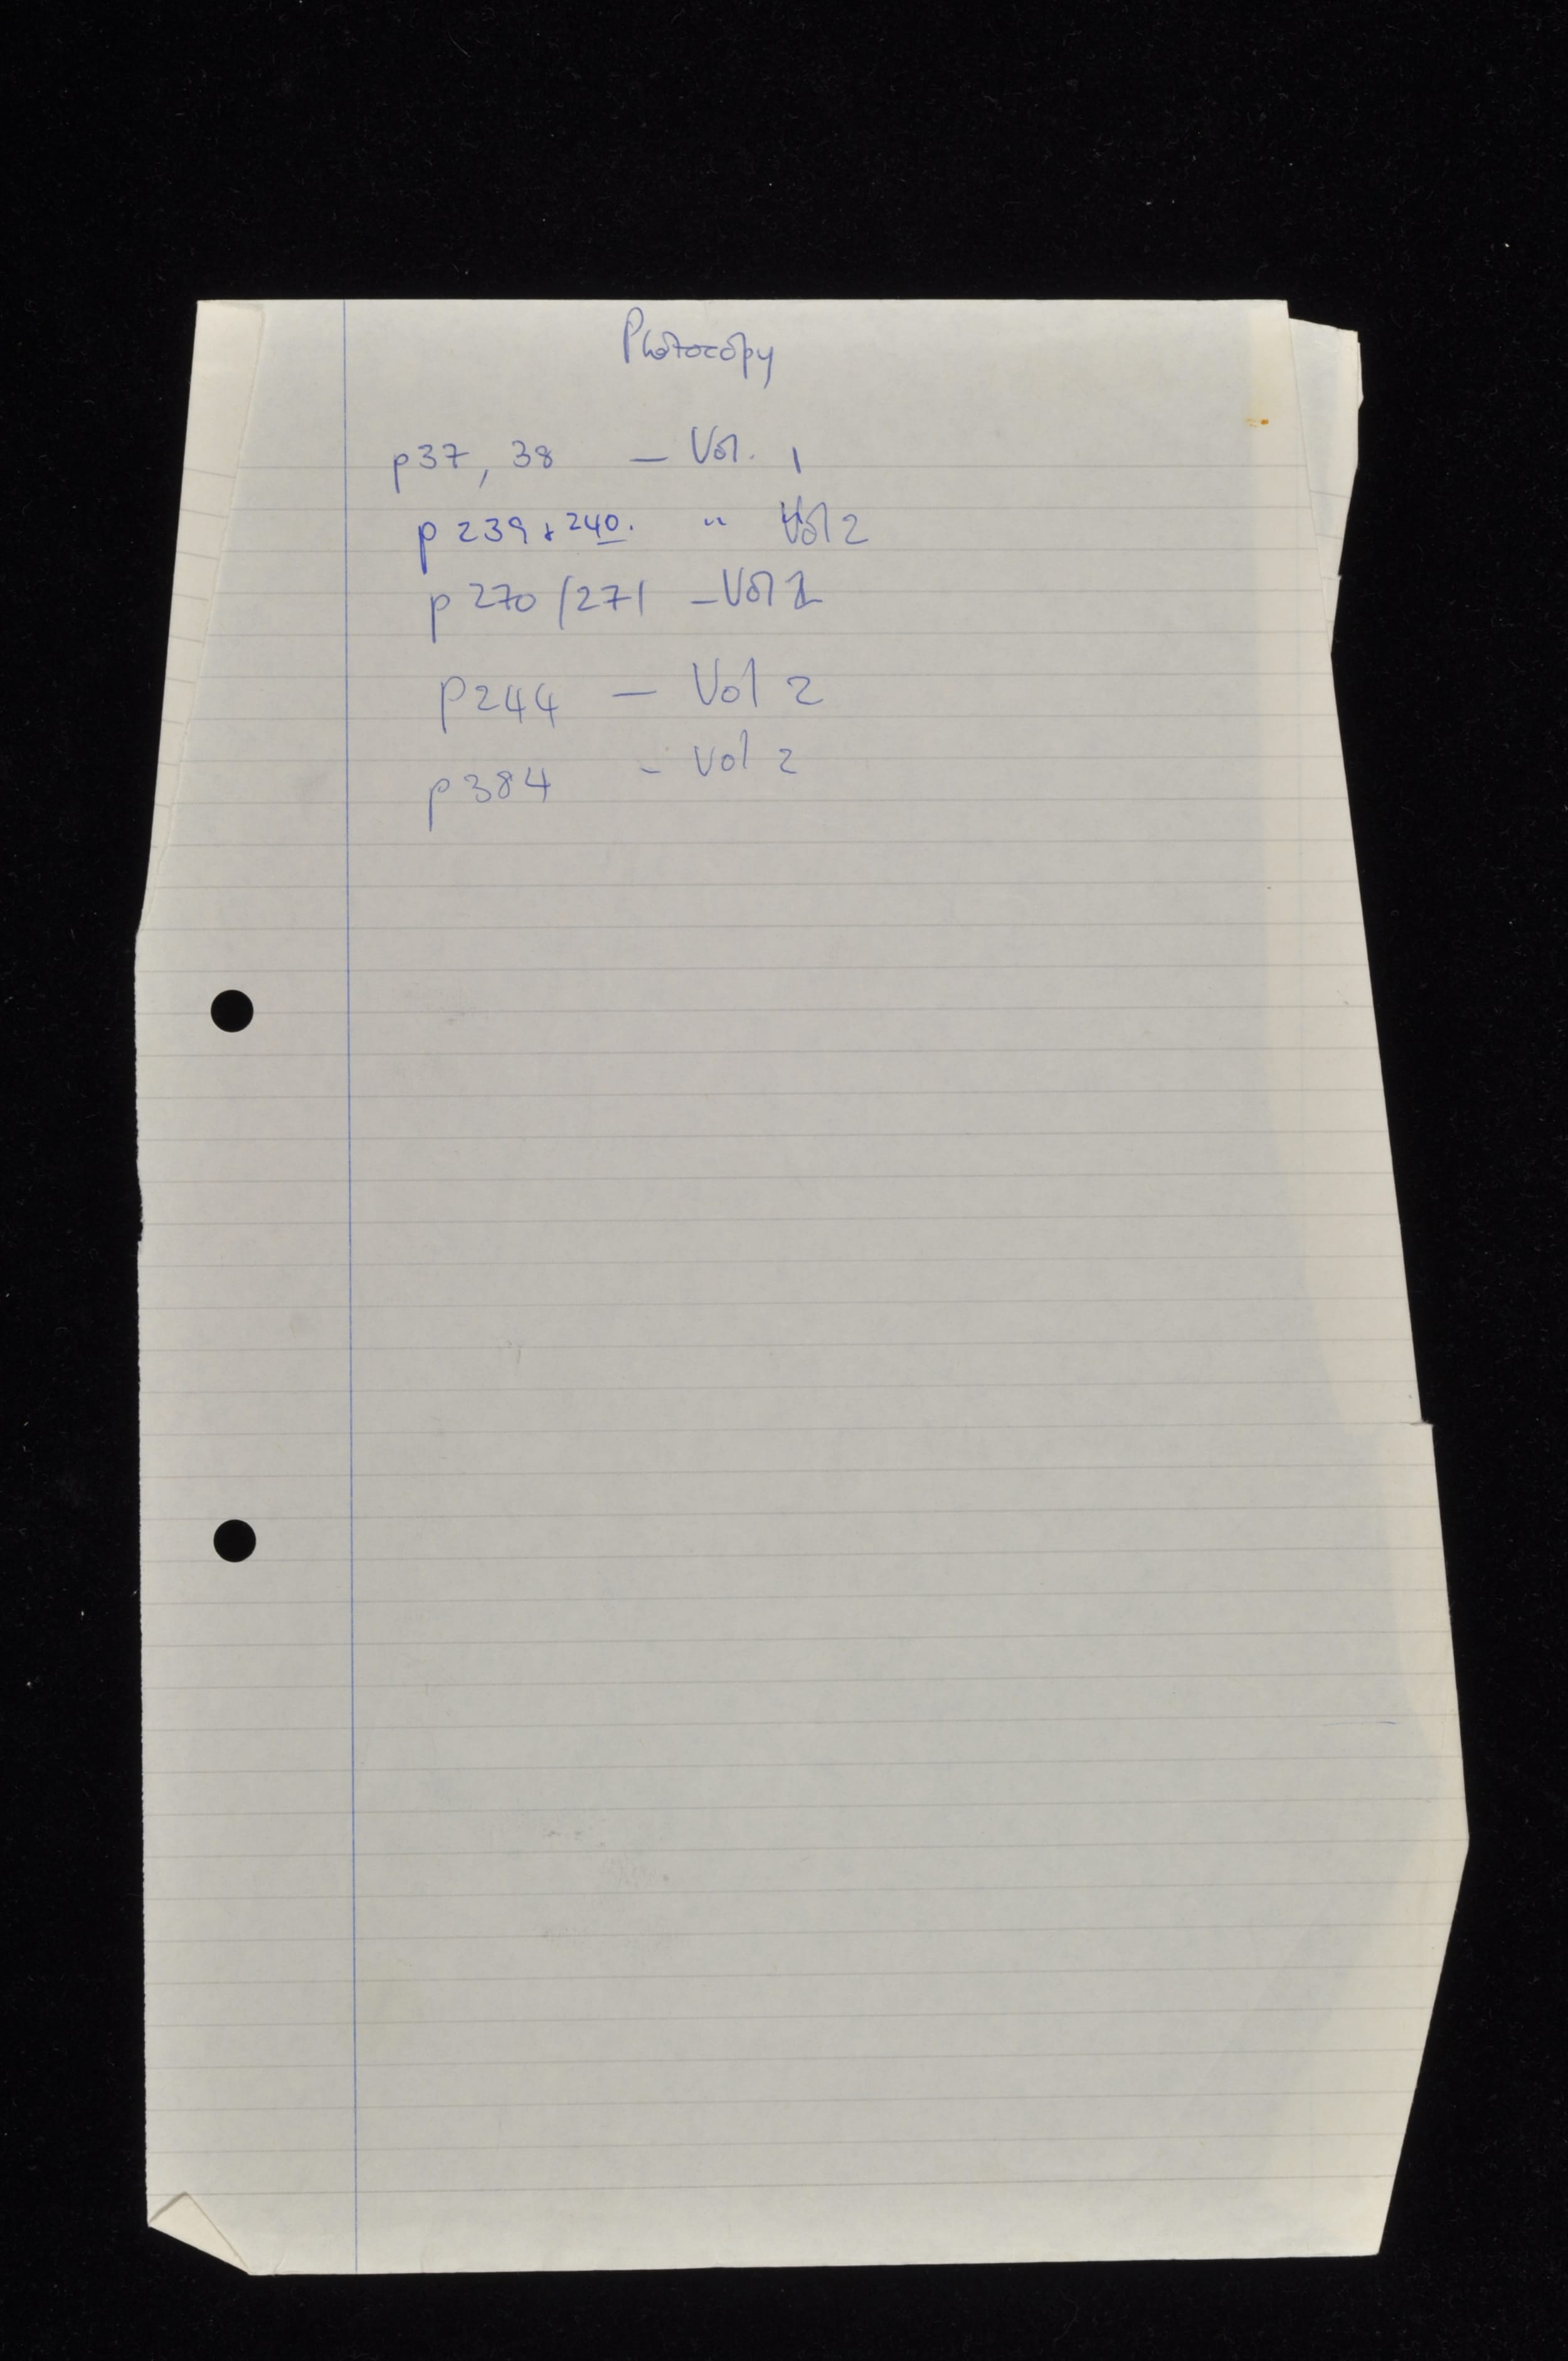 Photocopy
p37, 38 — Vol. 1
p 239 & 240. " Vol 2
p 270/271 – Vol
p244 — Vol 2
p384 – Vol 2